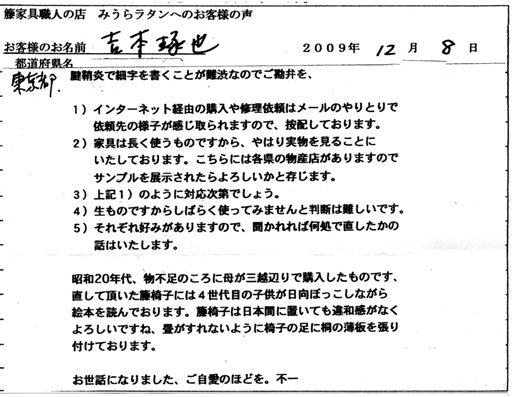 籐家具職人の店 みうらラタンへのお客様の声
お客様のお名前 吉本琢也 2009年 12月 8日
都道府県名
東京都 腱鞘炎で細字を書くことが難渋なのでご勘弁を、
1）インターネット経由の購入や修理依頼はメールのやりとりで
依頼先の様子が感じ取られますので、按配しております。
2）家具は長く使うものですから、やはり実物を見ることに
いたしております。こちらには各県の物産店がありますので
サンプルを展示されたらよろしいかと存じます。
3）上記1）のように対応次第でしょう。
4）生ものですからしばらく使ってみませんと判断は難しいです。
5）それぞれ好みがありますので、聞かれれば何処で直したかの
話はいたします。
昭和20年代、物不足のころに母が三越辺りで購入したものです、
直して頂いた籐椅子には4世代目の子供が日向ぼっこしながら
絵本を読んでおります。籐椅子は日本間に置いても違和感がなく
よろしいですね、畳がすれないように椅子の足に桐の薄板を張り
付けております。
お世話になりました、ご自愛のほどを。不一